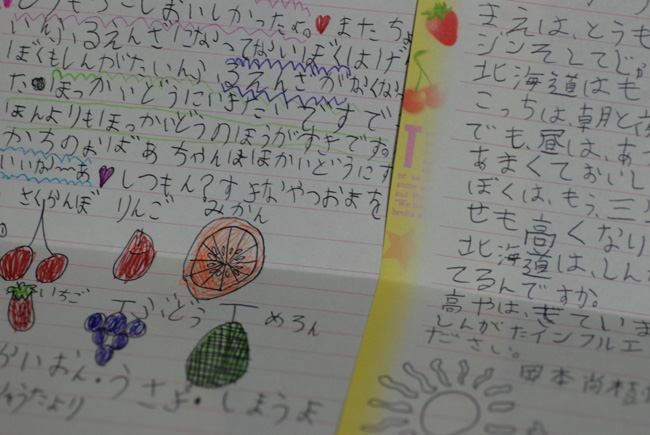 とうもろこしおいしかったよ。♥またちょ
いんふるえんざになってないぼくはげ
ぼくもしんがたいんふるえんざがなくな
た ほっかいどうにいきたいですで
ほんよりもほっかいどうのほうがすきです。
かちのよばあちゃんはほかいどうにす
いいな〜あ♥しつもん?すきなやつおまを
さくらんぼ りんご みかん
いちご ぶどう めろん
らいおん・うさぎ・しまうま
ゅうたより
まえは、とうも
ジンそしてじゃ
北海道はも
こっちは、朝と夜
でも、昼は、あ
あまくておいし
ぼくは、もう、三
せも高くなり
北海道は、しん
てるんですか。
高やは、きていま
しんがたインフルエ
ださい。
田本尚